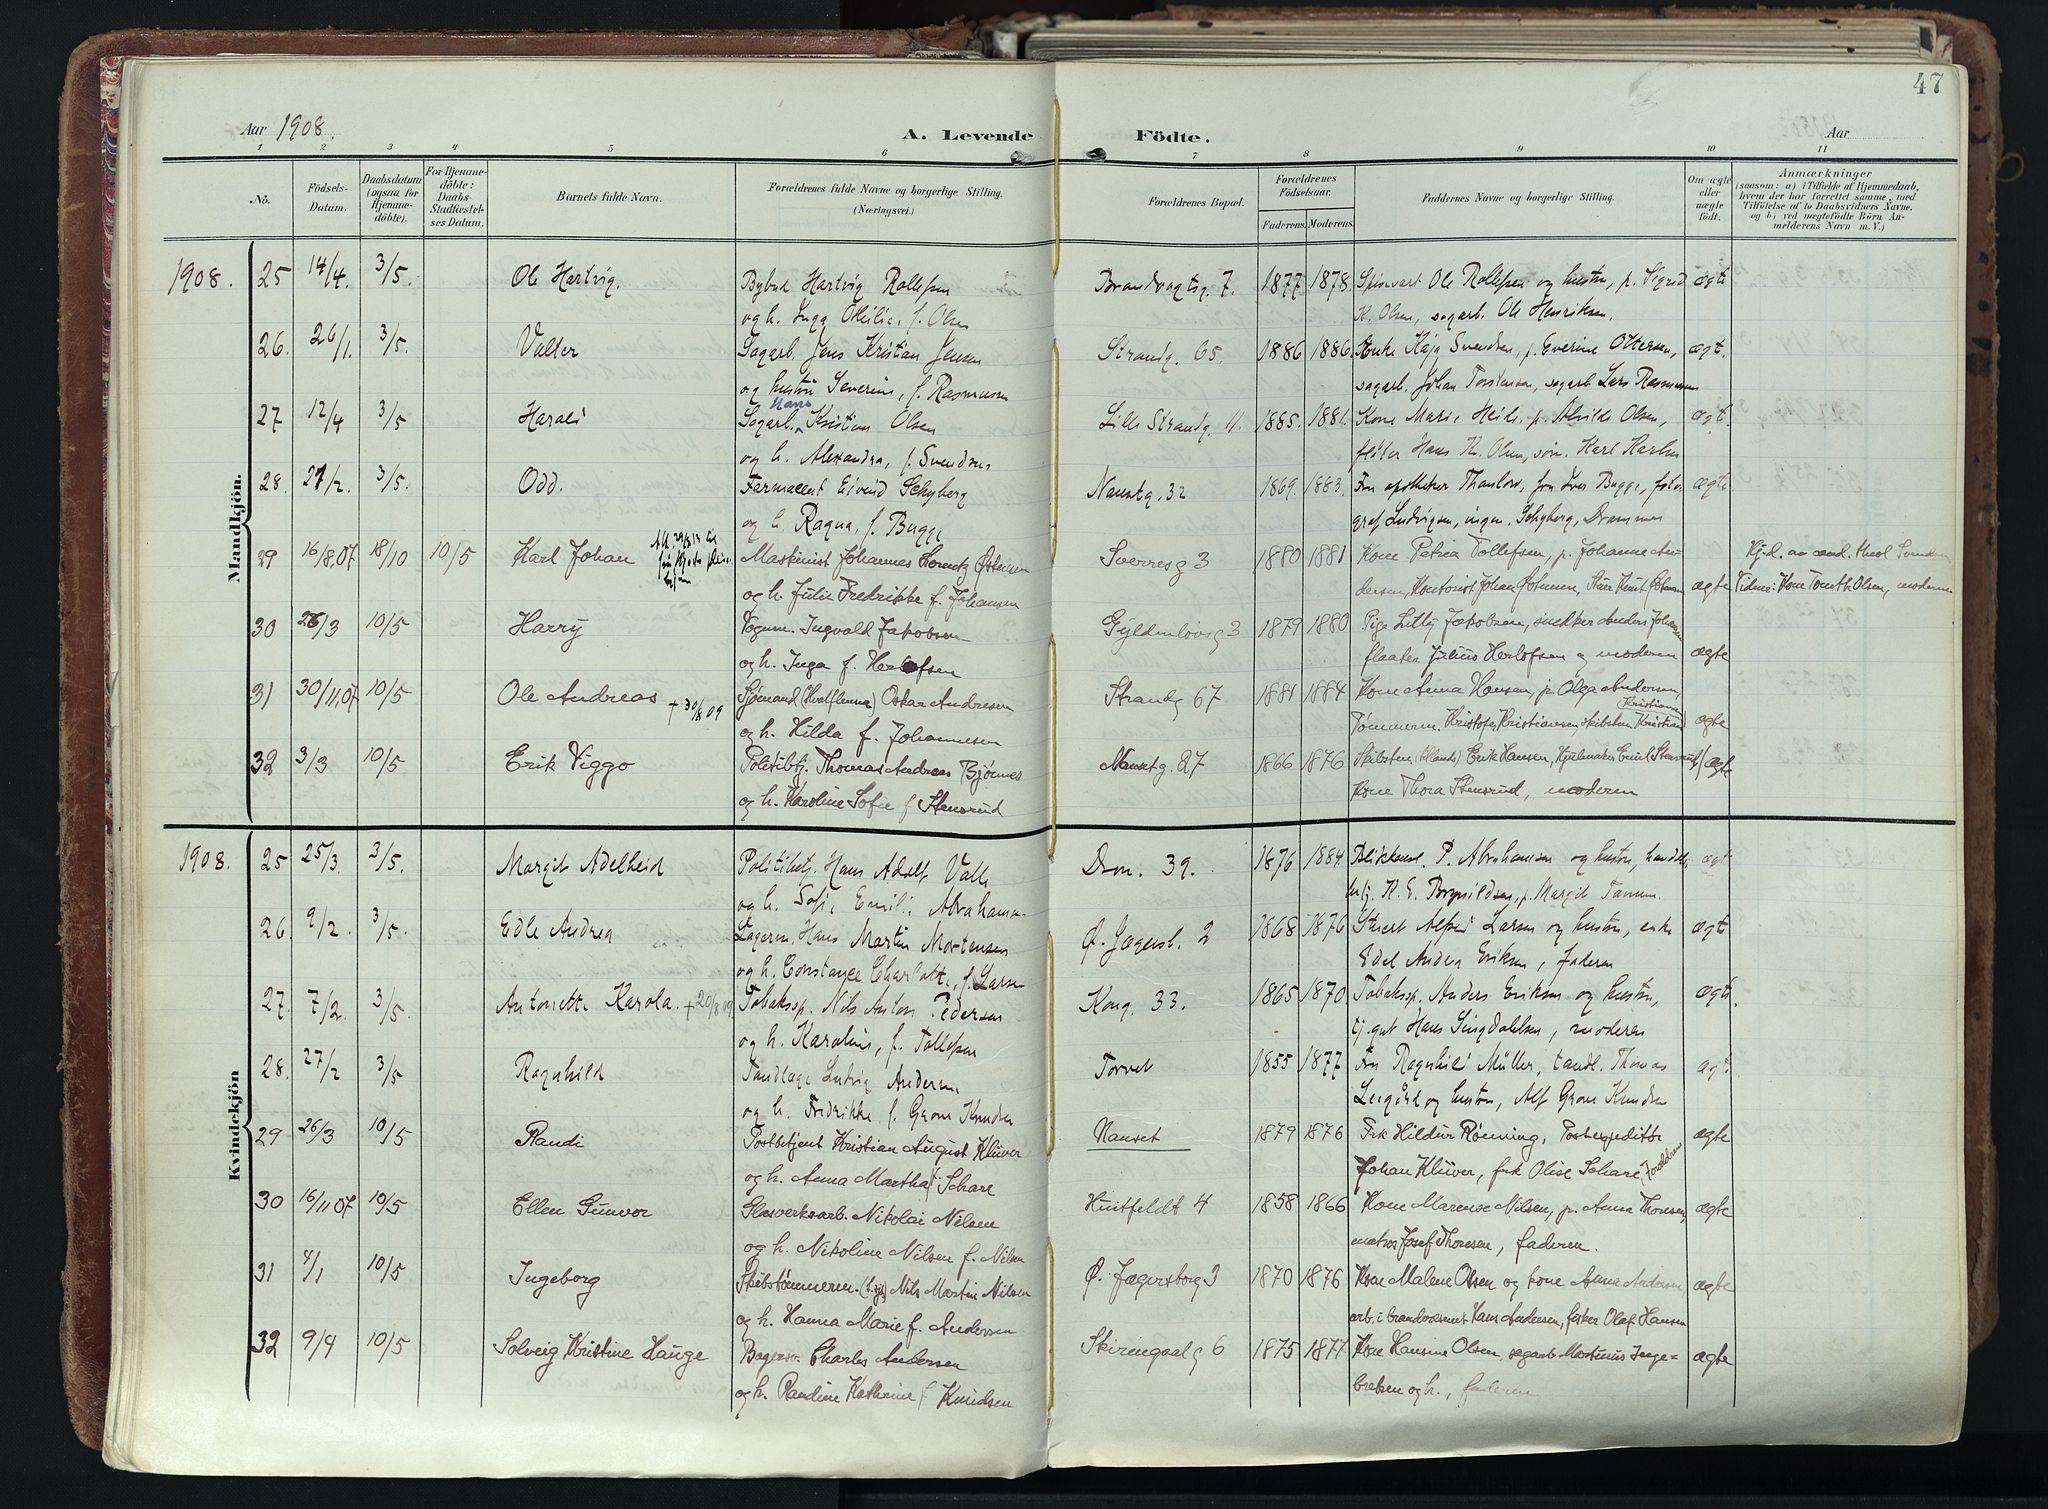 47
Aar 1908. A. Levende Födte. Aar
1 2 3 4 5 6 7 8 9 10 11
No. Födsels-Datum. Daabsdatum (ogsaa for Hjemmedöbte). For Hjemmedöbte: Daabs-Stadfæstelses Datum. Barnets fulde Navn. Forældrenes fulde Navne og borgerlige Stilling. (Næringsvei.) Forældrenes Bopæl. Forældrenes Födselsaar. Faderens. Moderens. Faddernes Navne og borgerlige Stilling. Om ægte eller uægte födt. Anmærkninger (saasom: a) i Tilfælde af Hjemmedaab, hvem der har forrettet samme, med Tilföielse af to Daabsvidners Navne, og b) ved uægtefödte Börn Anmelderens Navn m. V.)
Mandkjön.
1908. 25 14/4 3/5. Ole Hartvig. Bybud Hartvig Rollefsen Brandvagtsg. 7. 1877 1878. Ole Rollefsen og hustru, p. Sigrid ægte
og h. Inga Otilie, f. Olsen K. Olsen, sagarb. Ole Henriksen.
26. 26/1. 3/5. Valter Sagarb. Jens Kristian Jensen Strandg. 65. 1886 1886. Enke Kaja Svendsen, p. Everine Ottersen, ægt.
og hustru Severine, f. Rasmussen sagarb. Johan Torstensen, sagarb Lars Rasmussen
27 12/4 3/5 Harald Sagarb. Hans Kristian Olsen Lille Strandg. 11. 1885. 1881. Kone Marie Heide, p. Alvilde Olsen, ægt.
og h. Alexandra, f. Svendsen fløter Hans K. Olsen, søm. Karl Karlsen
28. 27/2. 3/5. Odd. Farmaceut Eivind Schyberg Nansetg. 32 1869. 1883. Fru apotheker Thaulow, fru Iver Bugge, foto- ægte
og h. Ragna, f. Bugge graf Ludvigsen, ingen. Schyberg, Drammen
29 16/8.07 18/10 10/5 Karl Johan Maskinist Johannes Lorentz Østensen Sverresg 3 1880 1881 Kone Petra Tollefsen, p. Johanne An- Hj.d. av cand. theol Svendsen
og h. Julie Fredrikke f. Johansen dersen, Kontorist Johan Østensen, Knut Østensen ægte Vidner: Kone Olsen, moderen
30 26/3 10/5 Harry Vognm. Ingvald Jakobsen Gyldenløvsg 3 1879 1880 Pige Lilly Jakobsen, snekker Anders Johansen
og h. Inga f. Herlofsen flaater Julius Herlofsen og moderen ægte
31 30/11.07 10/5 Ole Andreas + 30/8 09 Sjømand (Hvalfanger) Oskar Andresen Strandg 67 1881 1884 Kone Anna Hansen, p. Olga Andersen,
og h. Hilda f. Johannesen Tømmerm. Kristofer Kristiansen, skibstm. Kristian Kristiansen ægte
32 3/3 10/5 Erik Viggo Politibtj. Thomas Andreas Bjønnes Nansetg. 27 1866 1876 Skibstm. Erik Hansen, Hjulmaker Emil Stensrud ægte
og h. Karoline Sofie f Stensrud Kone Thora Stensrud, moderen
Kvindekjön
1908. 25 25/3. 3/5. Margit Adelheid Politibetj. Hans Adolf Valle Dron. 39. 1876 1884. Blikkensl. P. Abrahamsen og hustru, handels- ægt
og h. Sofie Emilie Abrahamsen btj. K. E. Borgnildsen, p. Margit Tanum.
26. 9/2. 3/5. Edle Andrea Lagerm. Hans Martin Mortensen Ø. Jegersb. 2 1868 1876 Stuert Alfred Larsen og hustru, enke ægt
og h. Constance Charlotte, f. Larsen Edel Andrea Eriksen, faderen
27. 7/2. 3/5. Antonette Karola. + 20/8 09 Tobaksp. Nils Anton Pedersen Kong. 33. 1865 1870 Tobaksp. Anders Eriksen og hustru, ægt.
og h. Karoline, f. Tollefsen tj.gut Hans Lingdalsen, moderen
28. 27/2 3/5 Ragnhild Tandlæge Ludvig Andersen Torvet 1855 1877 Fru Ragnhild Müller, tandl. Thomas ægt.
og h. Fredrikke f. Grove Knudsen og hustru, Alf Grove Knudsen
29 26/3 10/5 Randi Postbetjent Kristian August Klüver Nanset 1879 1876 Frk Hildur Rønning, Postexpeditør ægte
og h. Anna Martha f. Schare Johan Klüver, frk Olise Schare, forældrene
30 16/11.07 10/5 Ellen Gunvor Glasverksarb. Nikolai Nilsen Huitfeldt 4 1858 1866 Kone Marense Nilsen, p. Anna Thoresen, ægte
og h. Nikoline Nilsen f. Nilsen matros Josef Thoresen, faderen.
31 4/1 10/5 Ingeborg Skibstømmerm. Nils Martin Nilsen Ø. Jegersborg 3 1870 1876 Kone Malene Olsen og kone Anna Andersen, ægte
og h. Hanna Marie f. Andersen arb. i brandvæsenet Hans Andersen, fisker Olaf Hansen
32 9/4 10/5 Solveig Kristine Hauge Bagersv. Charles Andersen Skiringsalg 6 1875 1877 Kone Hansine Olsen, sagarb Martinius Inge- ægte
og h. Randine Kathrine f Knudsen bretsen og h., faderen